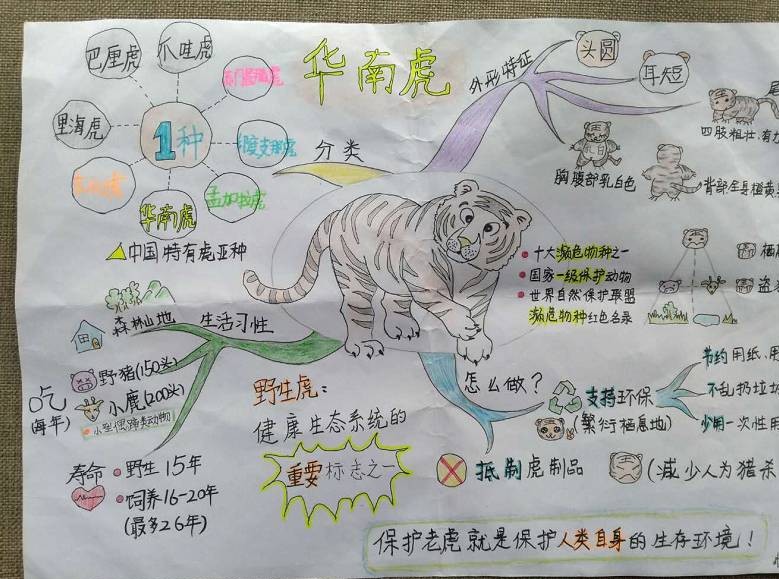 华南虎
巴厘虎
爪哇虎
里海虎
1种
孟加拉虎
华南虎
分类
△中国特有虎亚种
外形特征
头圆
耳短
四肢粗壮,有力
胸腹部乳白色
背部全身橙黄
十大濒危物种之一
国家一级保护动物
世界自然保护联盟
濒危物种红色名录
森林山地
生活习性
野猪(150头)
小鹿(200头)
吃
(每年)
寿命
野生15年
饲养16-20年
(最多26年)
野生虎:
健康生态系统的
重要标志之一
怎么做?
支持环保
(繁衍栖息地)
节约用纸、用
不乱扔垃圾
少用一次性用
抵制虎制品
(减少人为猎杀
保护老虎就是保护人类自身的生存环境!